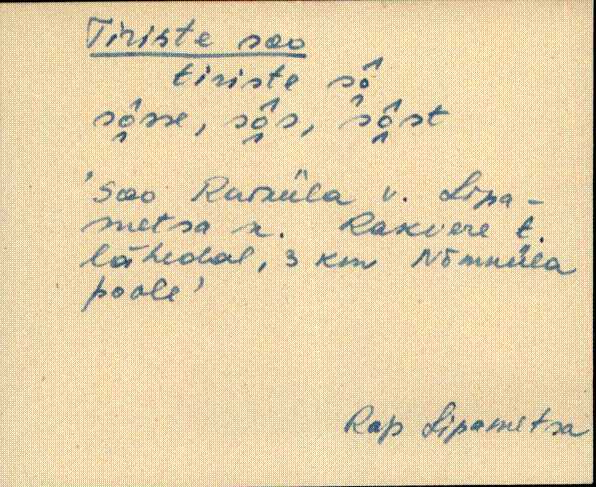 Tiriste soo
tiriste sô̭
sô̭sse, sô̭s, sô̭st
'Soo Raiküla v. Lipa-
metsa k. Rakvere t.
lähedal, 3 km Nõmküla
poole'
Rap Lipametsa